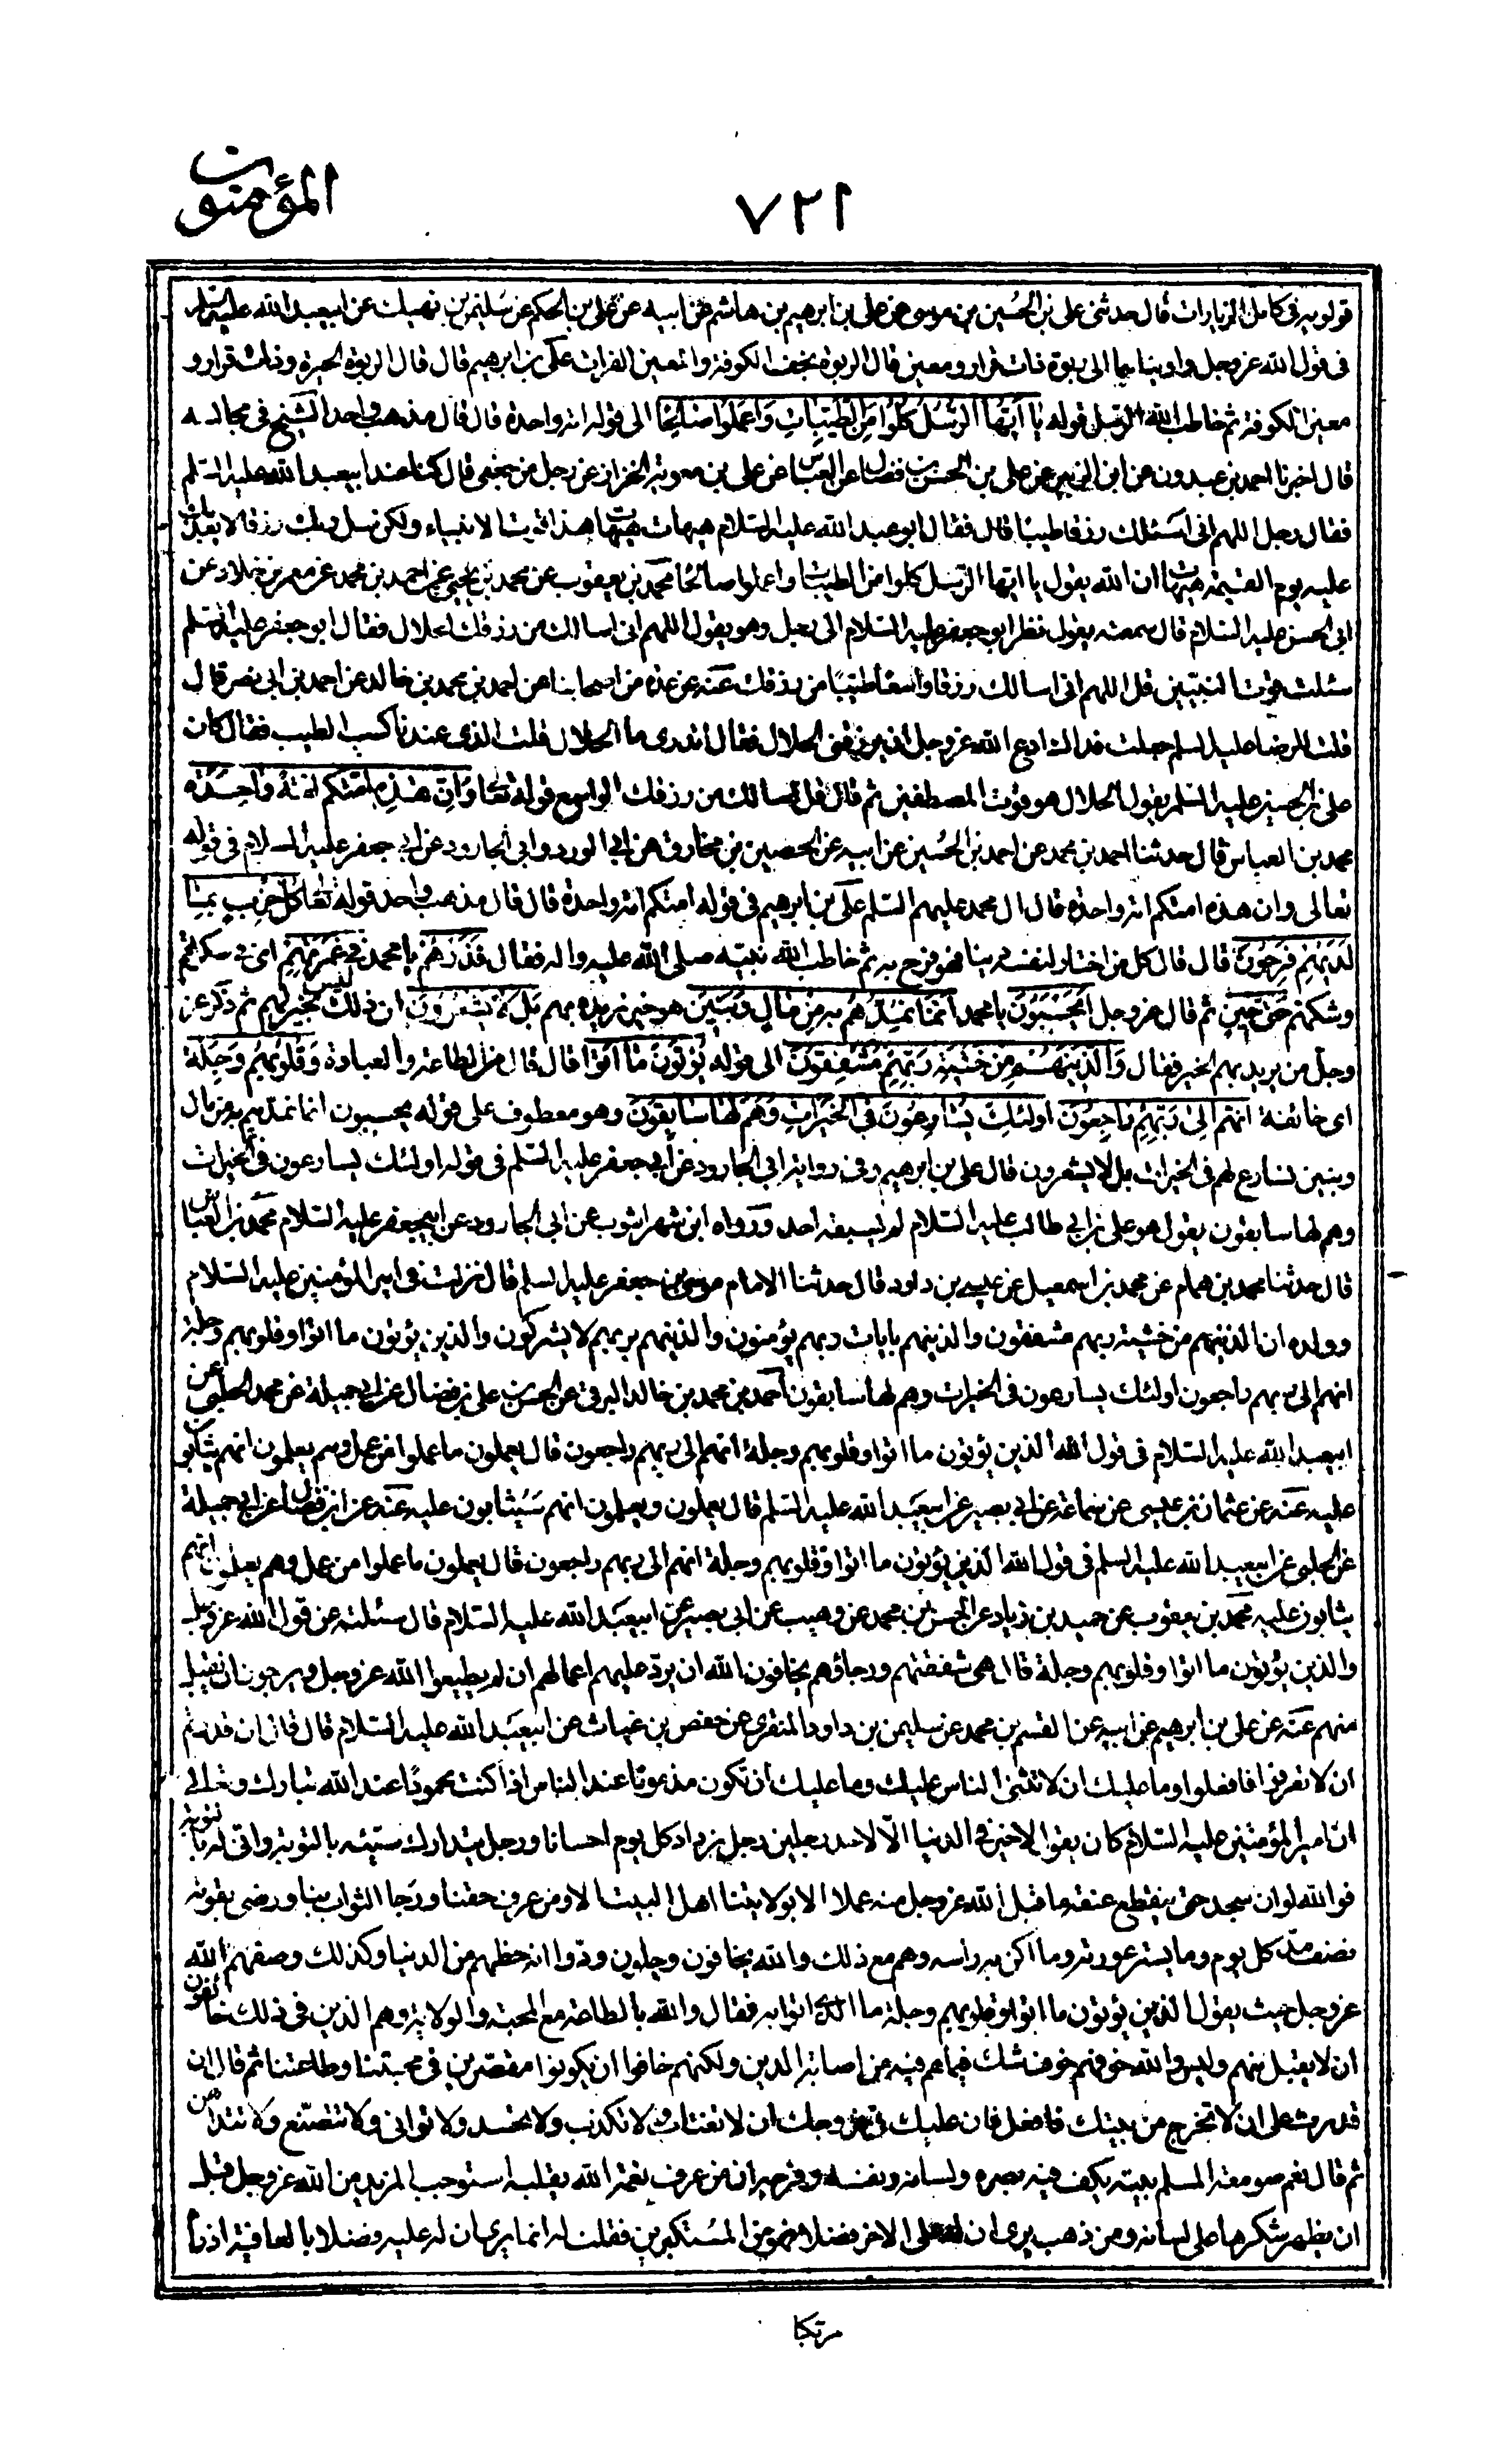 المؤمنون
٧٢١
قولويه فى كامل الزيارات قال حدثنى على بن الحسين بن موسى عن على بن ابرهيم بن هاشم عن ابيه عن على بن الحكم عن سليمن بن نهيك عن ابيعبد الله عليه السلم
فى قول الله عز وجل واويناهما الى ربوة ذات قرار ومعين قال الربوة نجف الكوفة والمعين الفرات على بن ابرهيم قال قال الربوة الحيرة وذات قرار و
معين الكوفة ثم خاطب الله الرسل قوله يا ايها الرسل كلوا من الطيبات واعملوا صالحا الى قوله امة واحدة قال قال مذهب واحد الشيخ فى مجالسه
قال اخبرنا احمد بن عبدون عن ابن الزبير عن على بن الحسن بن فضال عن العباس عن على بن معوية الخزاز عن رجل من جعفى قال كنا عند ابيعبد الله عليه السلم
فقال رجل اللهم انى اسئلك رزقا طيبا قال فقال ابو عبد الله عليه السلام هيهات هيهات هذا قوت الانبياء ولكن سل ربك رزقا لا يعذبك
عليه يوم القيمة هيهات ان الله يقول يا ايها الرسل كلوا من الطيبات واعملوا صالحا محمد بن يعقوب عن محمد بن يحيى عن احمد بن محمد عن معمر بن خلاد عن
ابى الحسن عليه السلام قال سمعته يقول نظر ابو جعفر عليه السلام الى رجل وهو يقول اللهم انى اسالك من رزقك الحلال فقال ابو جعفر عليه السلم
سئلت قوت النبيين قل اللهم انى اسالك رزقا واسعا طيبا من رزقك عنه عن عدة من اصحابنا عن احمد بن محمد بن خالد عن احمد بن ابى نصر قال
قلت للرضا عليه السلم جعلت فداك ادع الله عز وجل ان يرزقنى الحلال فقال اتدرى ما الحلال قلت الذى عندنا كسب الطيب فقال كان
على بن الحسين عليه السلم يقول الحلال هو قوت المصطفين ثم قال قل اسالك من رزقك الواسع قوله تعا وان هذه امتكم امة واحدة
محمد بن العباس قال حدثنا احمد بن محمد عن احمد بن الحسين عن ابيه عن الحصين بن مخارق عن ابى الورد وابى الجارود عن ابى جعفر عليه السلام فى قوله
تعالى وان هذه امتكم امة واحدة قال ال محمد عليهم السلم على بن ابرهيم فى قوله امتكم امة واحدة قال قال مذهب واحد قوله تعا كل حزب بما
لديهم فرحون قال قال كل من اختار لنفسه دينا فهو فرح به ثم خاطب الله نبيه صلى الله عليه واله فقال فذرهم يا محمد فى غمرتهم اى فى سكرتهم
وشكهم حتى حين ثم قال عز وجل ايحسبون يا محمد انما نمدهم به من مال وبنين هو خير نريده بهم بل لا يشعرون ان ذلك ليس بخير لهم ثم ذكر عز
وجل من يريد بهم الخير فقال والذين هم من خشية ربهم مشفقون الى قوله يؤتون ما اتوا قال قال من الطاعة والعبادة وقلوبهم وجلة
اى خائفة انهم الى ربهم راجعون اولئك يسارعون فى الخيرات وهم لها سابقون وهو معطوف على قوله يحسبون انما نمدهم به من مال
وبنين نسارع لهم فى الخيرات بل لا يشعرون قال على بن ابرهيم وفى رواية ابى الجارود عن ابى جعفر عليه السلم فى قوله اولئك يسارعون فى الخيرات
وهم لها سابقون يقول هو على بن ابى طالب عليه السلام لم يسبقه احد ورواه ابن شهراشوب عن ابى الجارود عن ابيجعفر عليه السلام محمد بن العباس
قال حدثنا محمد بن همام عن محمد بن اسمعيل عن عيسى بن داود قال حدثنا الامام موسى بن جعفر عليه السلم قال نزلت فى امير المؤمنين عليه السلام
وولده ان الذينهم من خشية ربهم مشفقون والذينهم بايات ربهم يؤمنون والذينهم بربهم لا يشركون والذين يؤتون ما اتوا وقلوبهم وجلة
انهم الى ربهم راجعون اولئك يسارعون فى الخيرات وهم لها سابقون احمد بن محمد بن خالد البرقى عن الحسن بن على بن فضال عن ابى جميلة عن محمد الحلبى عن
ابيعبد الله عليه السلام فى قول الله الذين يؤتون ما اتوا وقلوبهم وجلة انهم الى ربهم راجعون قال يعملون ما عملوا من عمل وهم يعلمون انهم يثابون
عليه عنه عن عثمان بن عيسى عن سماعة عن ابى بصير عن ابيعبد الله عليه السلم قال يعملون ويعلمون انهم سيثابون عليه عنه عن ابن فضال عن ابى جميلة
عن الحلبى عن ابيعبد الله عليه السلم فى قول الله الذين يؤتون ما اتوا وقلوبهم وجلة انهم الى ربهم راجعون قال يعملون ما عملوا من عمل وهم يعلمون انهم
يثابون عليه محمد بن يعقوب عن حميد بن زياد عن الحسن بن محمد عن وهيب عن ابى بصير عن ابيعبد الله عليه السلام قال سئلته عن قول الله عز وجل
والذين يؤتون ما اتوا وقلوبهم وجلة قال هى شفقتهم ورجاؤهم يخافون الله ان يرد عليهم اعمالهم ان لم يطيعوا الله عز وجل ويرجون ان يقبل
منهم عنه عن على بن ابرهيم عن ابيه عن القسم بن محمد عن سليمن بن داود المنقرى عن حفص بن غياث عن ابيعبد الله عليه السلام قال قال ان قدرتم
ان لا تعرفوا فافعلوا وما عليك ان لا تثنى الناس عليك وما عليك ان تكون مذموما عند الناس اذا كنت محمودا عند الله تبارك وتعالى
ان امير المؤمنين عليه السلام كان يقول لا خير فى الدنيا الا لاحد رجلين رجل يزداد كل يوم احسانا ورجل يتدارك سيئه بالتوبة وانى له بالتوبة
فوالله لو ان سجد حتى ينقطع عنقه ما قبل الله عز وجل منه عملا الا بولايتنا اهل البيت الا ومن عرف حقنا ورجا الثواب بنا ورضى بقوته
نصف مد كل يوم وما يستر عورته وما اكن به راسه وهم مع ذلك والله يخافون وجلون ودوا انه حظهم من الدنيا وكذلك وصفهم الله
عز وجل حيث يقول الذين يؤتون ما اتوا وقلوبهم وجلة ما الذى اتوا به فقال والله بالطاعة مع المحبة والولاية وهم الذين فى ذلك خائفون
ان لا يقبل منهم وليس والله خوفهم خوف شك فيما هم فيه من اصابة الدين ولكنهم خافوا ان يكونوا مقصرين فى محبتنا وطاعتنا ثم قال ان
قدرت على ان لا تخرج من بيتك فافعل فان عليك فى خروجك ان لا تغتاب ولا تكذب ولا تحسد ولا توانى ولا تتصنع ولا تتداهن
ثم قال نعم صومعة المسلم بيته يكف فيه بصره ولسانه ونفسه وفرجه ان من عرف نعمة الله بقلبه استوجب المزيد من الله عز وجل قبل
ان يظهر شكرها على لسانه ومن ذهب يرى ان له على الاخر فضلا فهو من المستكبرين فقلت له انما يرى ان له عليه فضلا بالعافية اذرا
مرتكبا